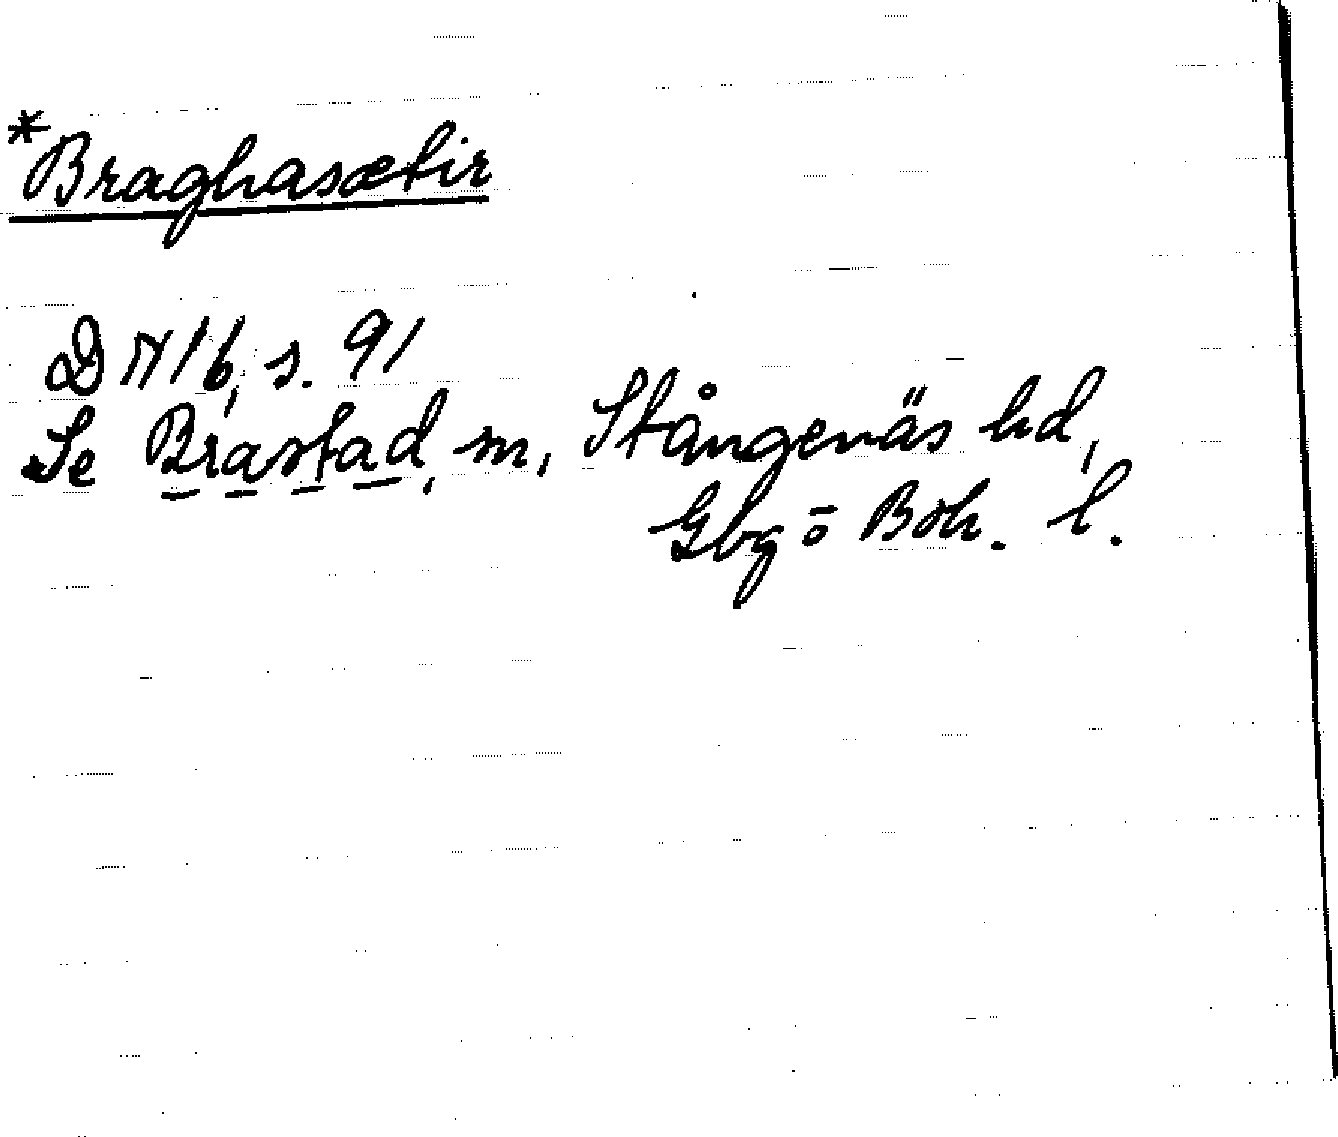 *Braghasætir
D N 16, s. 91
Se Brastad, sn, Stångenäs hd,
Gbg o Boh. l.